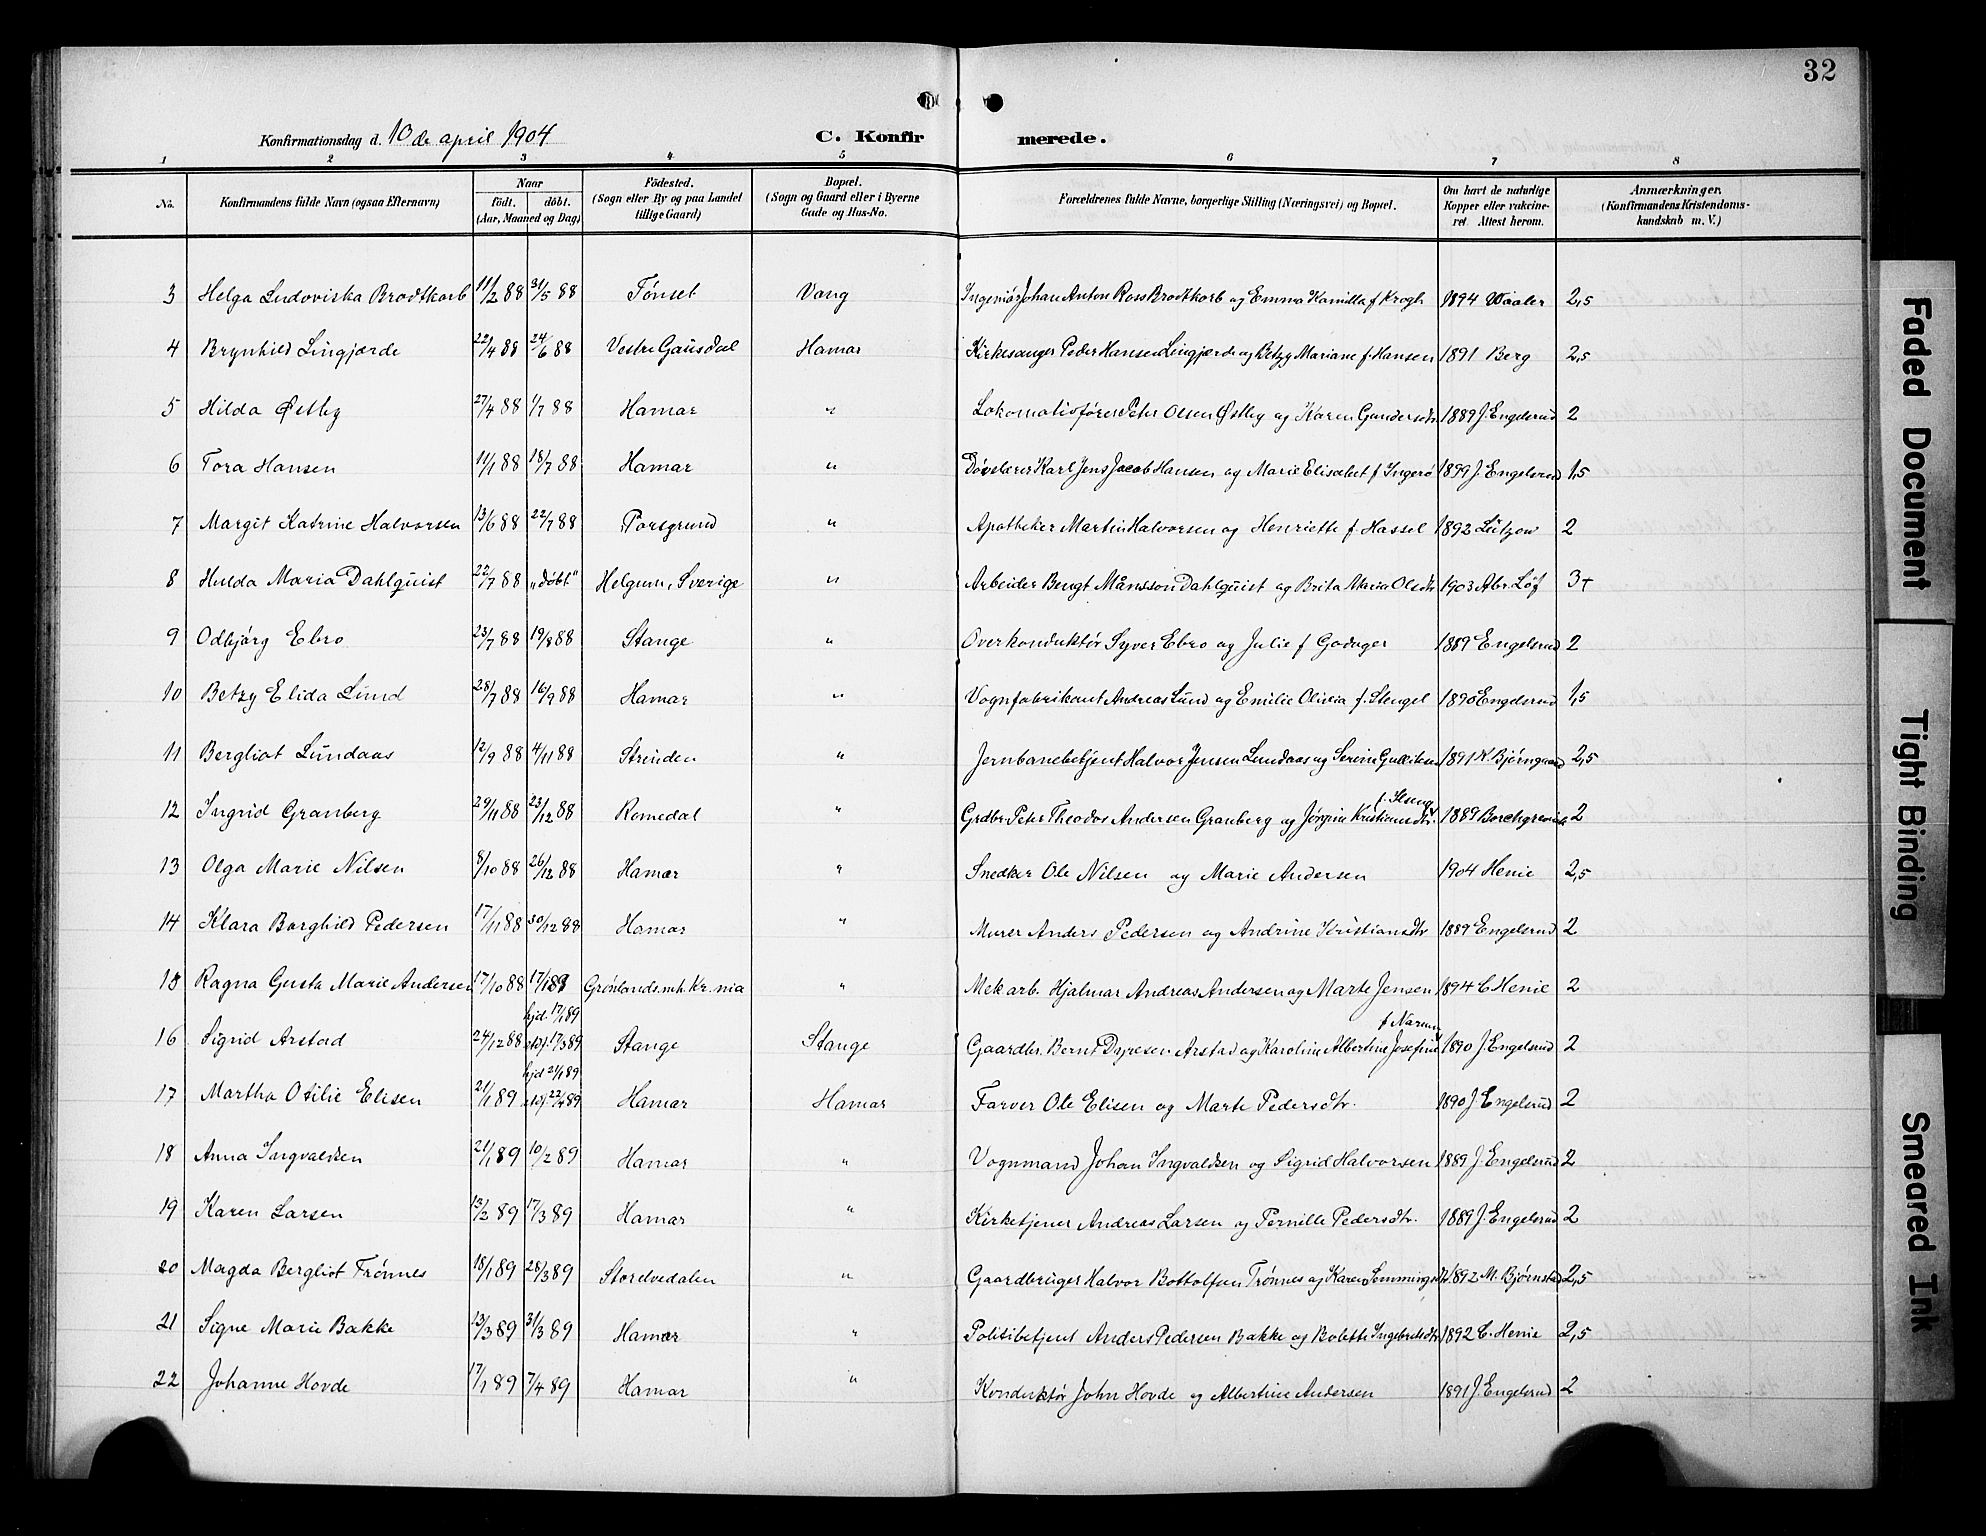 32
Konfirmationsdag d. 10de april 1904.
C. Konfirmerede.
1 2 3 4 5 6 7 8
No. Konfirmandens fulde Navn (ogsaa Efternavn) Naar født. døbt. (Aar, Maaned og Dag) Fødested. (Sogn eller By og paa Landet tillige Gaard) Bopæl. (Sogn og Gaard eller i Byerne Gade og Hus-No. Forældrenes fulde Navne, borgerlige Stilling (Næringsvei) og Bopæl. Om havt de naturlige Kopper eller vakcineret. Attest herom. Anmærkninger. (Konfirmandens Kristendomskundskab m. V.)
3 Helga Ludoviska Brodtkorb 11/2 88 31/5 88 Tønset Vang Ingeniør Johan Anton Ross Brodtkorb og Emma Kamilla f. Krogh 1894 Waaler 2,5
4 Brynhild Lingjærde 22/4 88 24/6 88 Vestre Gausdal Hamar Kirkesanger Peder Hansen Lingjærde og Betzy Mariane f. Hansen 1891 Berg 2,5
5 Hilda Østby 27/4 88 1/7 88 Hamar " Lokomotivfører Peter Olsen Østby og Karen Gundersdtr. 1889 J. Engelsrud 2
6 Tora Hansen 11/1 88 18/7 88 Hamar " Døvelærer Karl Jens Jacob Hansen og Marie Elisabet f Ingerø 1899 J. Engelsrud 1,5
7 Margit Katrine Halvorsen 13/6 88 22/7 88 Porsgrund " Apotheker Martin Halvorsen og Henriette f. Hassel 1892 Lützow 2
8 Hulda Maria Dahlquist 22/7 88 "døbt" Helgum, Sverige " Arbeider Bengt Månsson Dahlquist og Brita Maria Olsdtr 1903 Abr. Löf 3+
9 Odbjørg Ebro 23/7 88 19/8 88 Stange " Overkonduktør Syver Ebro og Julie f Godager 1889 Engelsrud 2
10 Betzy Elida Lund 28/7 88 16/9 88 Hamar " Vognfabrikant Andreas Lund og Emilie Olivia f. Stengel 1890 Engelsrud 1,5
11 Bergliot Lundaas 12/9 88 4/11 88 Strinden " Jernbanebetjent Halvor Jensen Lundaas og Serine Gulliksen 1891 K. Bjørngaard 2,5
12 Ingrid Granberg 29/11 88 23/12 88 Romedal " Grdbr. Peter Theodor Andersen Granberg og Jørgine Kristiansdtr. f. Ilseng 1889 Borchgrevink 2
13 Olga Marie Nilsen 8/10 88 26/12 88 Hamar " Snedker Ole Nilsen og Marie Andersen 1904 Henie 2,5
14 Klara Borghild Pedersen 17/11 88 30/12 88 Hamar " Murer Anders Pedersen og Andrine Kristiansdtr 1889 Engelsrud 2
15 Ragna Gusta Marie Andersen 17/10 88 17/1 89 Grønlands.mh. Kr.nia " Mek arb. Hjalmar Andreas Andersen og Marte Jensen 1894 C. Henie 2
16 Sigrid Arstad 24/12 88 hjd. 17/1 89 stdf. 17/3 89 Stange Stange Gaardbr. Bernt Dyresen Arstad og Karoline Albertine Josefine f Narum 1890 J. Engelsrud 2
17 Martha Otilie Elisen 21/1 89 hjd 21/1 89 stdf. 22/4 89 Hamar Hamar Farver Ole Elisen og Marte Pedersdtr. 1890 J. Engelsrud 2
18 Anna Ingvaldsen 21/1 89 10/2 89 Hamar " Vognmand Johan Ingvaldsen og Sigrid Halvorsen 1889 J. Engelsrud 2
19 Karen Larsen 13/2 89 17/3 89 Hamar " Kirketjener Andreas Larsen og Pernille Pedersdtr. 1889 J. Engelsrud 2
20 Magda Bergliot Trønnes 18/1 89 28/3 89 Storelvedalen " Gaardbruger Halvor Bottolfsen Trønnes og Karen Semmingsdtr. 1892 M. Bjørnstad 2,5
21 Signe Marie Bakke 13/3 89 31/3 89 Hamar " Politibetjent Anders Pedersen Bakke og Bolette Ingebretsdtr. 1892 C. Henie 2,5
22 Johanne Hovde 17/1 89 7/4 89 Hamar " Konduktør John Hovde og Albertine Andersen 1891 J. Engelsrud 2
Faded Document
Tight Binding
Smeared Ink